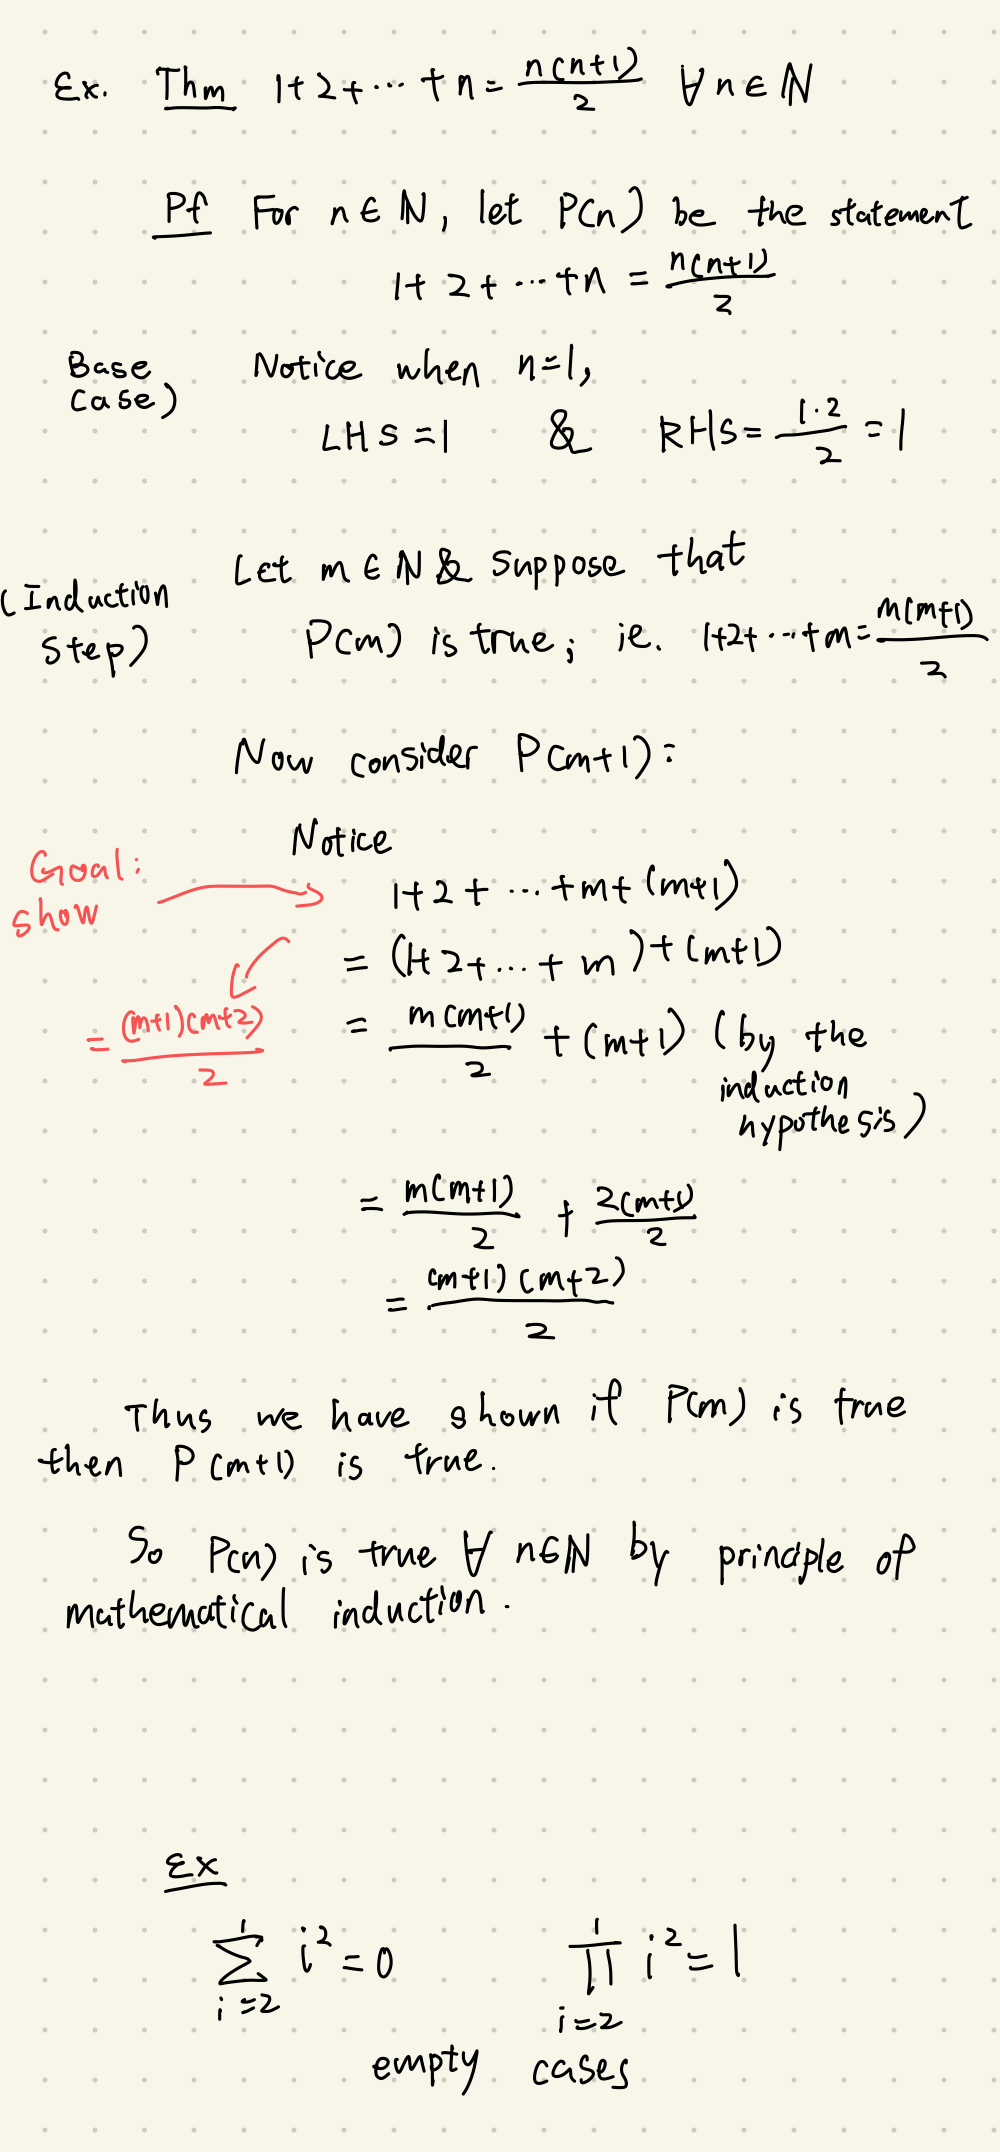 Ex. Thm 1+2+⋯+n = n(n+1)/2 ∀ n ∈ ℕ
Pf For n ∈ ℕ, let P(n) be the statement
1+2+⋯+n = n(n+1)/2
Base Notice when n=1,
Case)
LHS = 1 & RHS = 1·2/2 = 1
Let m ∈ ℕ & suppose that
(Induction
Step) P(m) is true; ie. 1+2+⋯+m = m(m+1)/2
Now consider P(m+1):
Notice
Goal:
show
1+2+⋯+m+(m+1)
= (1+2+⋯+m)+(m+1)
= (m+1)(m+2)/2
= m(m+1)/2 + (m+1) (by the
induction
hypothesis)
= m(m+1)/2 + 2(m+1)/2
= (m+1)(m+2)/2
Thus we have shown if P(m) is true
then P(m+1) is true.
So P(n) is true ∀ n∈ℕ by principle of
mathematical induction.
Ex
∑_{i=2}^{1} i² = 0 ∏_{i=2}^{1} i² = 1
empty cases